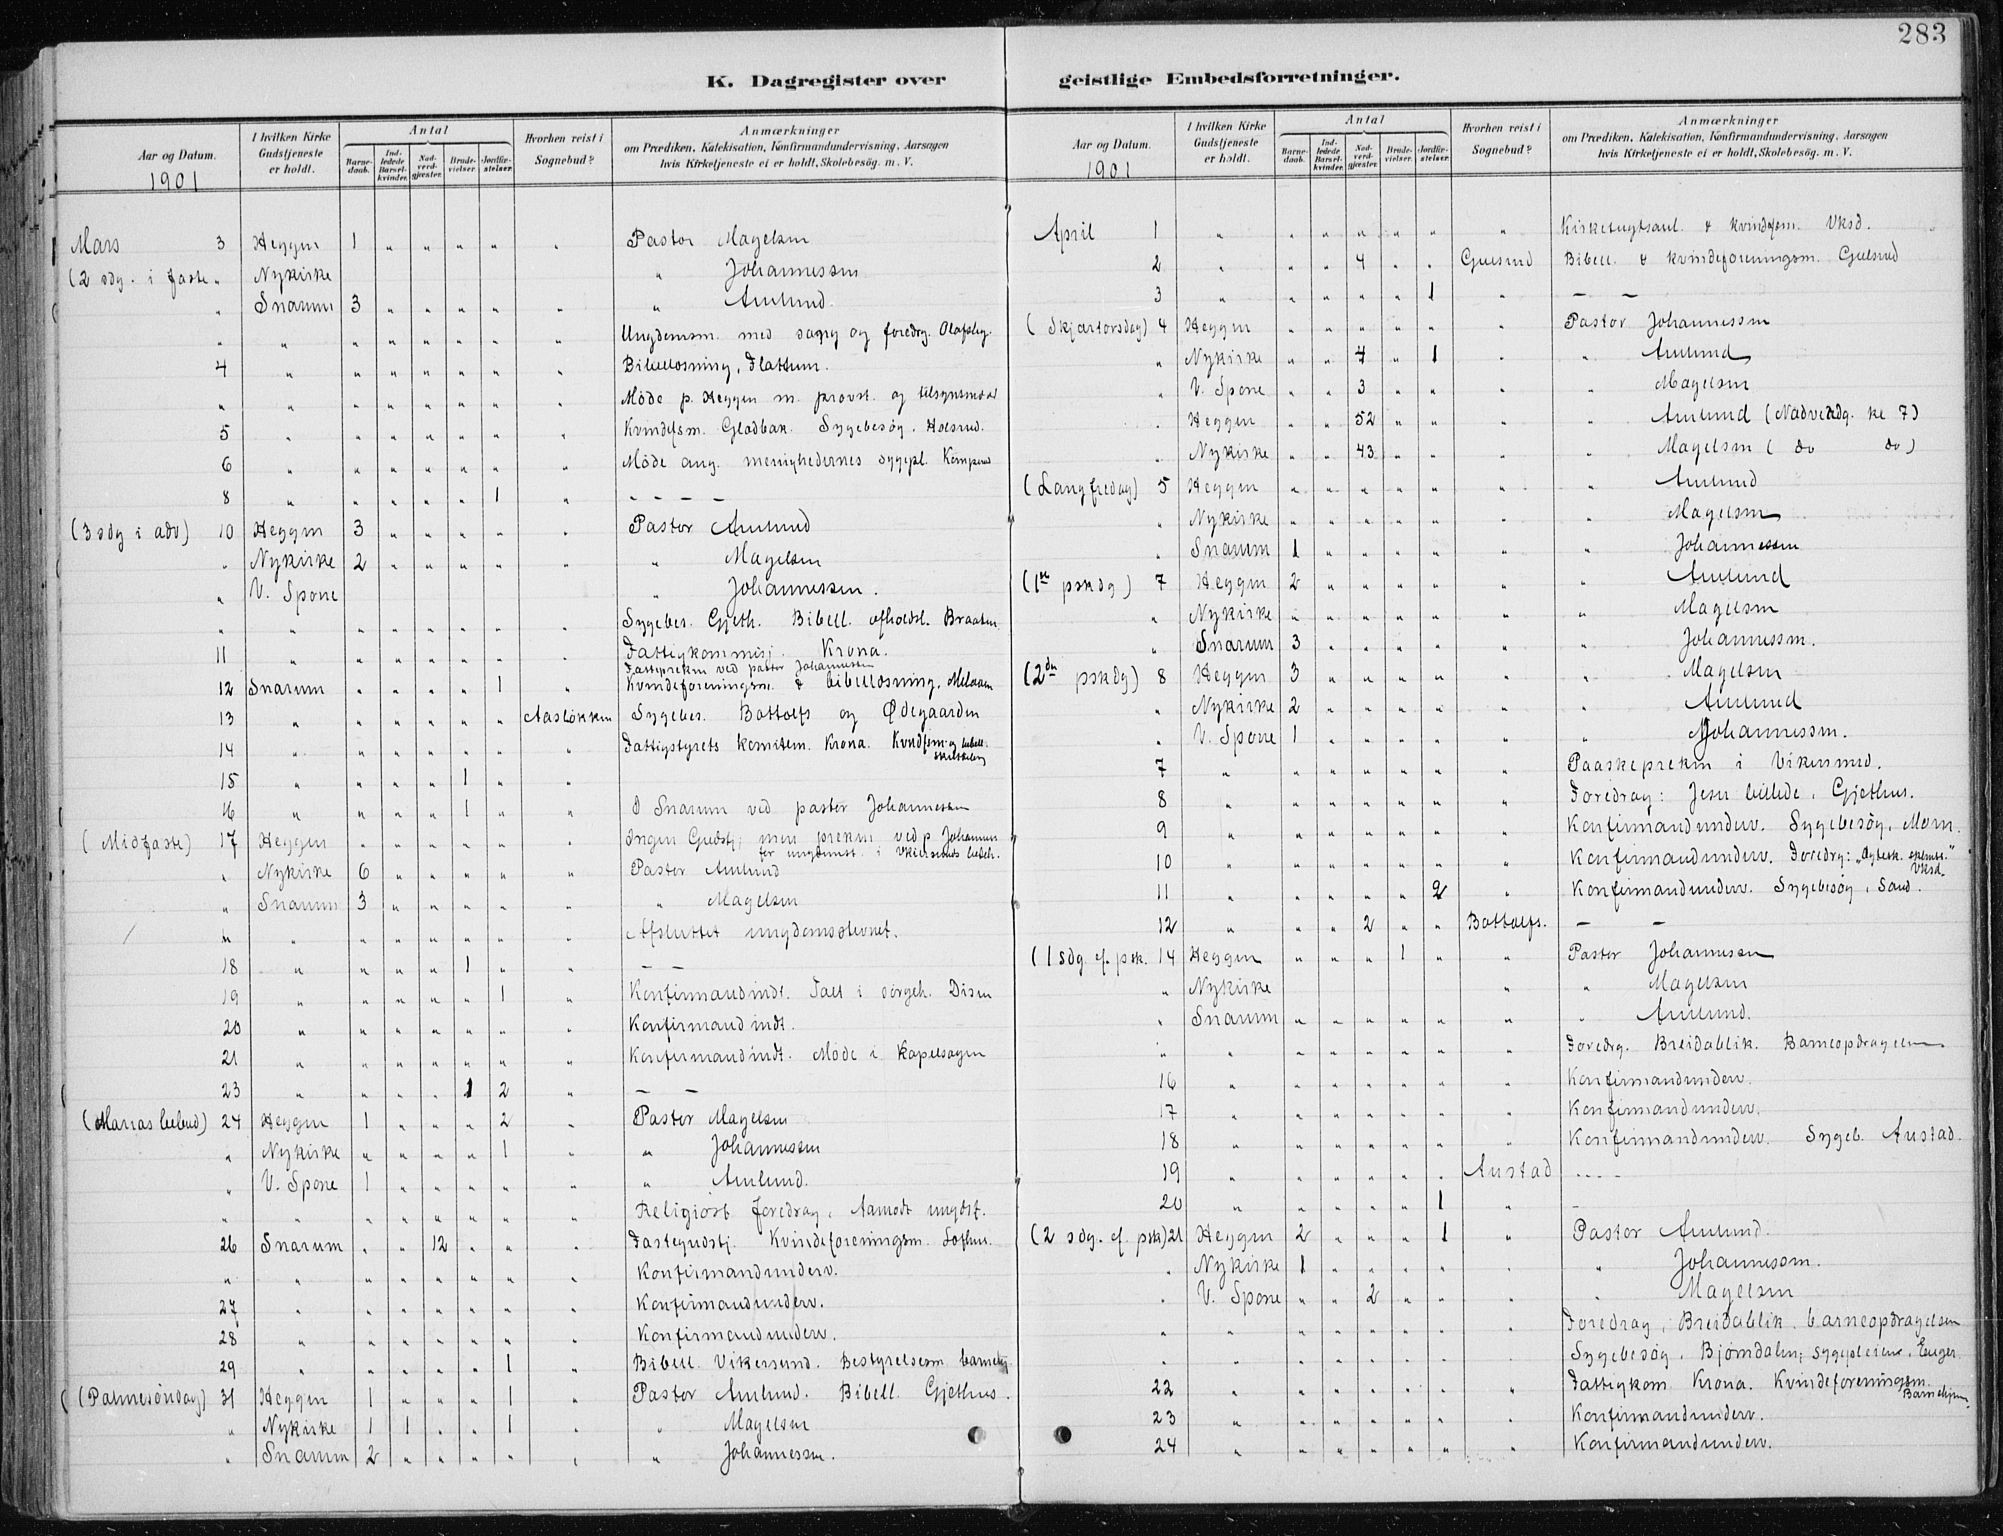 283
K. Dagregister over geistlige Embedsforretninger.
Aar og Datum. 1901
I hvilken Kirke Gudstjeneste er holdt.
Antal
Barnedaab.
Indledede Barselkvinder.
Nadverdgjæster.
Brudevielser.
Jordfæstelser.
Hvorhen reist i Sognebud?
Anmærkninger
om Prædiken, Katekisation, Konfirmandundervisning, Aarsagen
hvis Kirketjeneste ei er holdt, Skolebesøg. m. V.
Mars 3 Heggen 1 " " " " " Pastor Magelsen
(2 sdg. i faste " Nykirke " Johannessen
" Snarum 3 " " " " " " Amlund.
" " " " " " " " Ungdomsm. med sang og foredrg. Olafsby.
4 " " " " " " " Bibellæsning, Flattum.
" " " " " " " " Møde p. Heggen m. provst. og tilsynsmænd
5 " " " " " " " Kvindefsm. Gladbak. Sygebesøg, Holsrud.
6 " " " " " " " Møde ang. menighedernes sygepl. Kemperud
8 " " " " " 1 " - - - -
(3 sdg i adv) 10 Heggen 3 " " " " " Pastor Amlund
" Nykirke 2 " " " " " Magelsen
" V. Spone " Johannessen.
" " " " " " " " Sygebes. Gjeth. Bibell. afholdt. Braaten
11 " " " " " " " Fattigkommisj. Krona.
Fasteprekn ved pastor Johannessen
12 Snarum " " " " 1 " Kvindeforeningsm. & bibellæsning, Melaaen
13 " " " " " " Aasløkken Sygebes. Bottolfs og Ødegaarden
14 " " " " " " " Fattigstyrets komiteen. Krona. Kvndfsm. og bibell.
15 " " " " 1 " "
16 " " " " 1 " " I Snarum ved pastor Johannessen
(Midfaste) 17 Heggen " " " " " " Ingen Gudstj. men prekn ved p. Johannes.
for ungdomst. i Vikersunds bedeh.
" Nykirke 6 " " " " " Pastor Amlund
" Snarum 3 " " " " " " Magelsen
" " " " " " " " Afsluttet ungdomsstevnet.
18 " " " " 1 " " - -
19 " " " " " 1 " Konfirmandindt. Talt i sørgeh. Disen
20 " " " " " " " Konfirmandindt.
21 " " " " " " " Konfirmandindt. Møde i kapelsagen
23 " " " " 1 2 " - -
(Marias bebud) 24 Heggen 1 " " " 2 " Pastor Magelsen
" Nykirke " " " " 1 " " Johannessen
" V. Spone 1 " " " " " " Amlund.
" " " " " " " " Religiøst foredrag, Aamodt ungdsf.
26 Snarum " " 12 " " " Fastegudstj. Kvindeforeningsm. Lofthus.
" " " " " " " " Konfirmandunderv.
27 " " " " " " " Konfirmandunderv.
28 " " " " " " " Konfirmandunderv.
29 " " " " " 1 " Bibell. Vikersund. Bestyrelsesm.
(Palmesøndag) 31 Heggen 1 " " " 1 " Pastor Amlund. Bibell. Gjethus.
" Nykirke 1 1 " " 1 " Magelsen
" Snarum 2 " " " " " " Johannessen.
Aar og Datum. 1901
I hvilken Kirke Gudstjeneste er holdt.
Antal
Barnedaab.
Indledede Barselkvinder.
Nadverdgjæster.
Brudevielser.
Jordfæstelser.
Hvorhen reist i Sognebud?
Anmærkninger
om Prædiken, Katekisation, Konfirmandundervisning, Aarsagen
hvis Kirketjeneste ei er holdt, Skolebesøg. m. V.
April 1 " " " " " " " Kirketugtsaul. & kvindefsm. Vksd.
2 " " " 4 " " Gulsrud Bibell. & kvindeforeningsm. Gulsrud
3 " " " " " 1 " - -
(Skjærtorsdag) 4 Heggen " " " " " " Pastor Johannessen
" Nykirke " " 7 " 1 " " Amlund
" V. Spone " " 3 " " " " Magelsen
" Heggen " " 52 " " " " Amlund (Nadverdg. kl 7)
" Nykirke " " 43 " " " " Magelsen (do do)
(Langfredag) 5 Heggen " " " " " " " Amlund
" Nykirke " " " " " " " Magelsen
" Snarum 1 " " " " " " Johannessen
(1ste pskdg) 7 Heggen 2 " " " " " " Amlund
" Nykirke " " " " " " " Magelsen
" Snarum 3 " " " " " " Johannessen.
(2den pskdg) 8 Heggen 3 " " " " " " Magelsen
" Nykirke 2 " " " " " " Amlund
" V. Spone 1 " " " " " " Johannessen.
7 " " " " " " " Paaskeprekn i Vikersund.
8 " " " " " " " Foredrag: Jesu billede, Gjethus.
9 " " " " " " " Konfirmandunderv. Sygebesøg, Moen.
10 " " " " " " " Konfirmandunderv. Foredrg: Vksd.
11 " " " " " 2 " Konfirmandunderv. Sygebesøg, Sand.
12 " " " 2 " " Bottolfs. - -
(1 sdg. ef. psk. 14 Heggen " " " 1 " " Pastor Johannessen
" Nykirke " " Magelsen
" Snarum " " " " " " " Amlund.
" " " " " " " " Foredrg. Breidablik. Barneopdragelsen.
16 " " " " " " " Konfirmandunderv.
17 " " " " " " " Konfirmandunderv.
18 " " " " " " " Konfirmandunderv. Sygeb. Austad.
19 " " " " " " Austad - - - -
20 " " " " " 1 " -
(2 sdg. ef. psk) 21 Heggen 2 " " " 1 " Pastor Amlund.
" Nykirke 1 " " " " " " Johannessen.
" V. Spone " " 2 " " " " Magelsen
" " " " " " " " Foredrag, Breidablik. barneopdragelsen
" " " " " " " " Sygebesøg. Bjørndalen, sygepleiens, Enger.
22 " " " " " " " Fattigkom. Krona. Kvindeforeningsm.
23 " " " " " " " Konfirmandunderv.
24 " " " " " " " Konfirmandunderv.